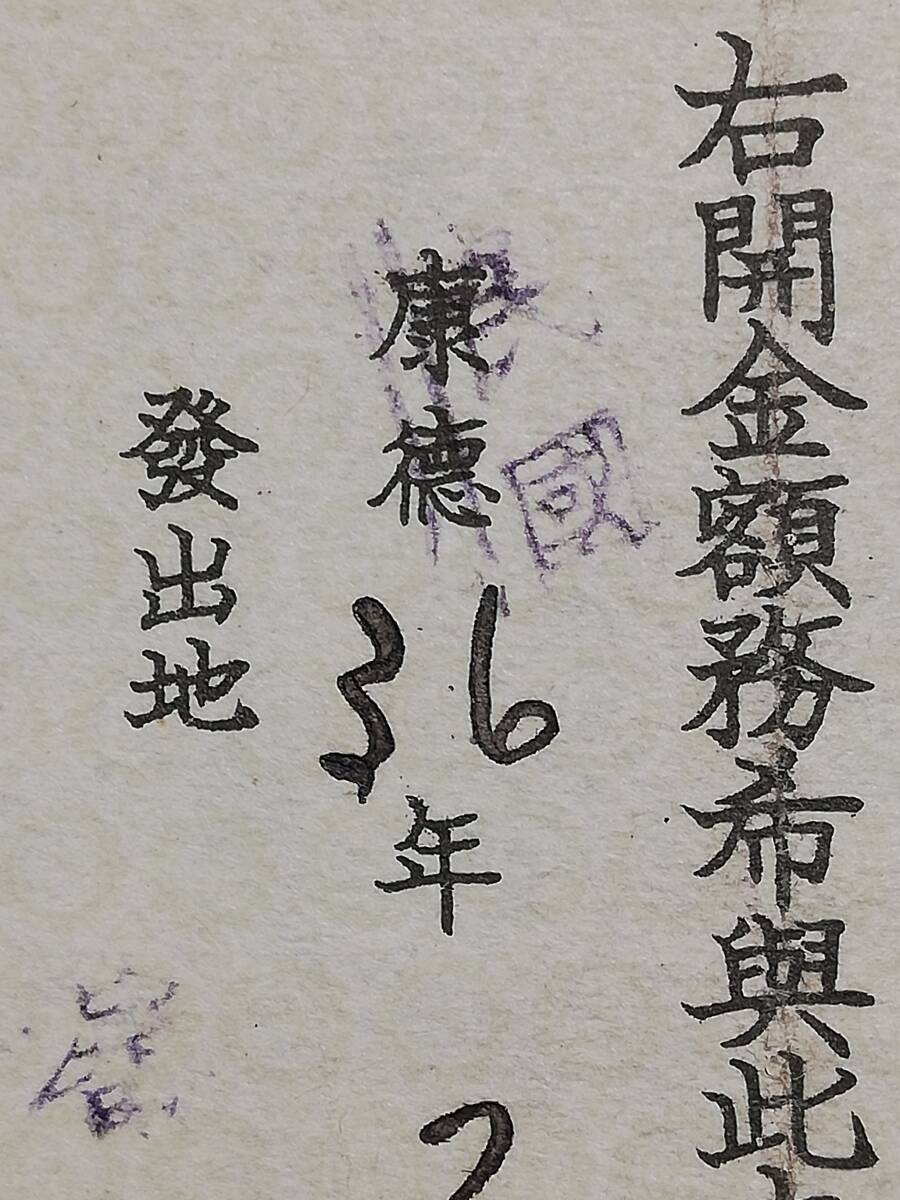 右開金額務希與此
康德36年
國
發出地